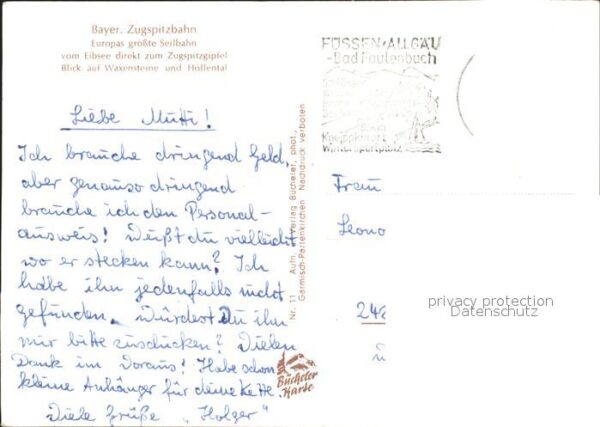 Bayer. Zugspitzbahn
Europas größte Seilbahn
vom Eibsee direkt zum Zugspitzgipfel
Blick auf Waxensteine und Höllental
Liebe Mutti!
Ich brauche dringend Geld,
aber genauso dringend
brauche ich den Personal-
ausweis! Weißt du vielleicht
wo er stecken kann? Ich
habe ihn jedenfalls nicht
gefunden. Würdest Du ihn
mir bitte zuschicken? Vielen
Dank im Voraus! Habe schon
kleine Anhänger für deine Kette.
Viele Grüße "Holger"
Nr. 11 Aufn. u. Verlag Bücheler, phot.,
Garmisch-Partenkirchen Nachdruck verboten
Bücheler
Karte
FÜSSEN/ALLGÄU
-Bad Faulenbach
Kneippkurort
Wintersportplatz
Frau
Leono
privacy protection
Datenschutz